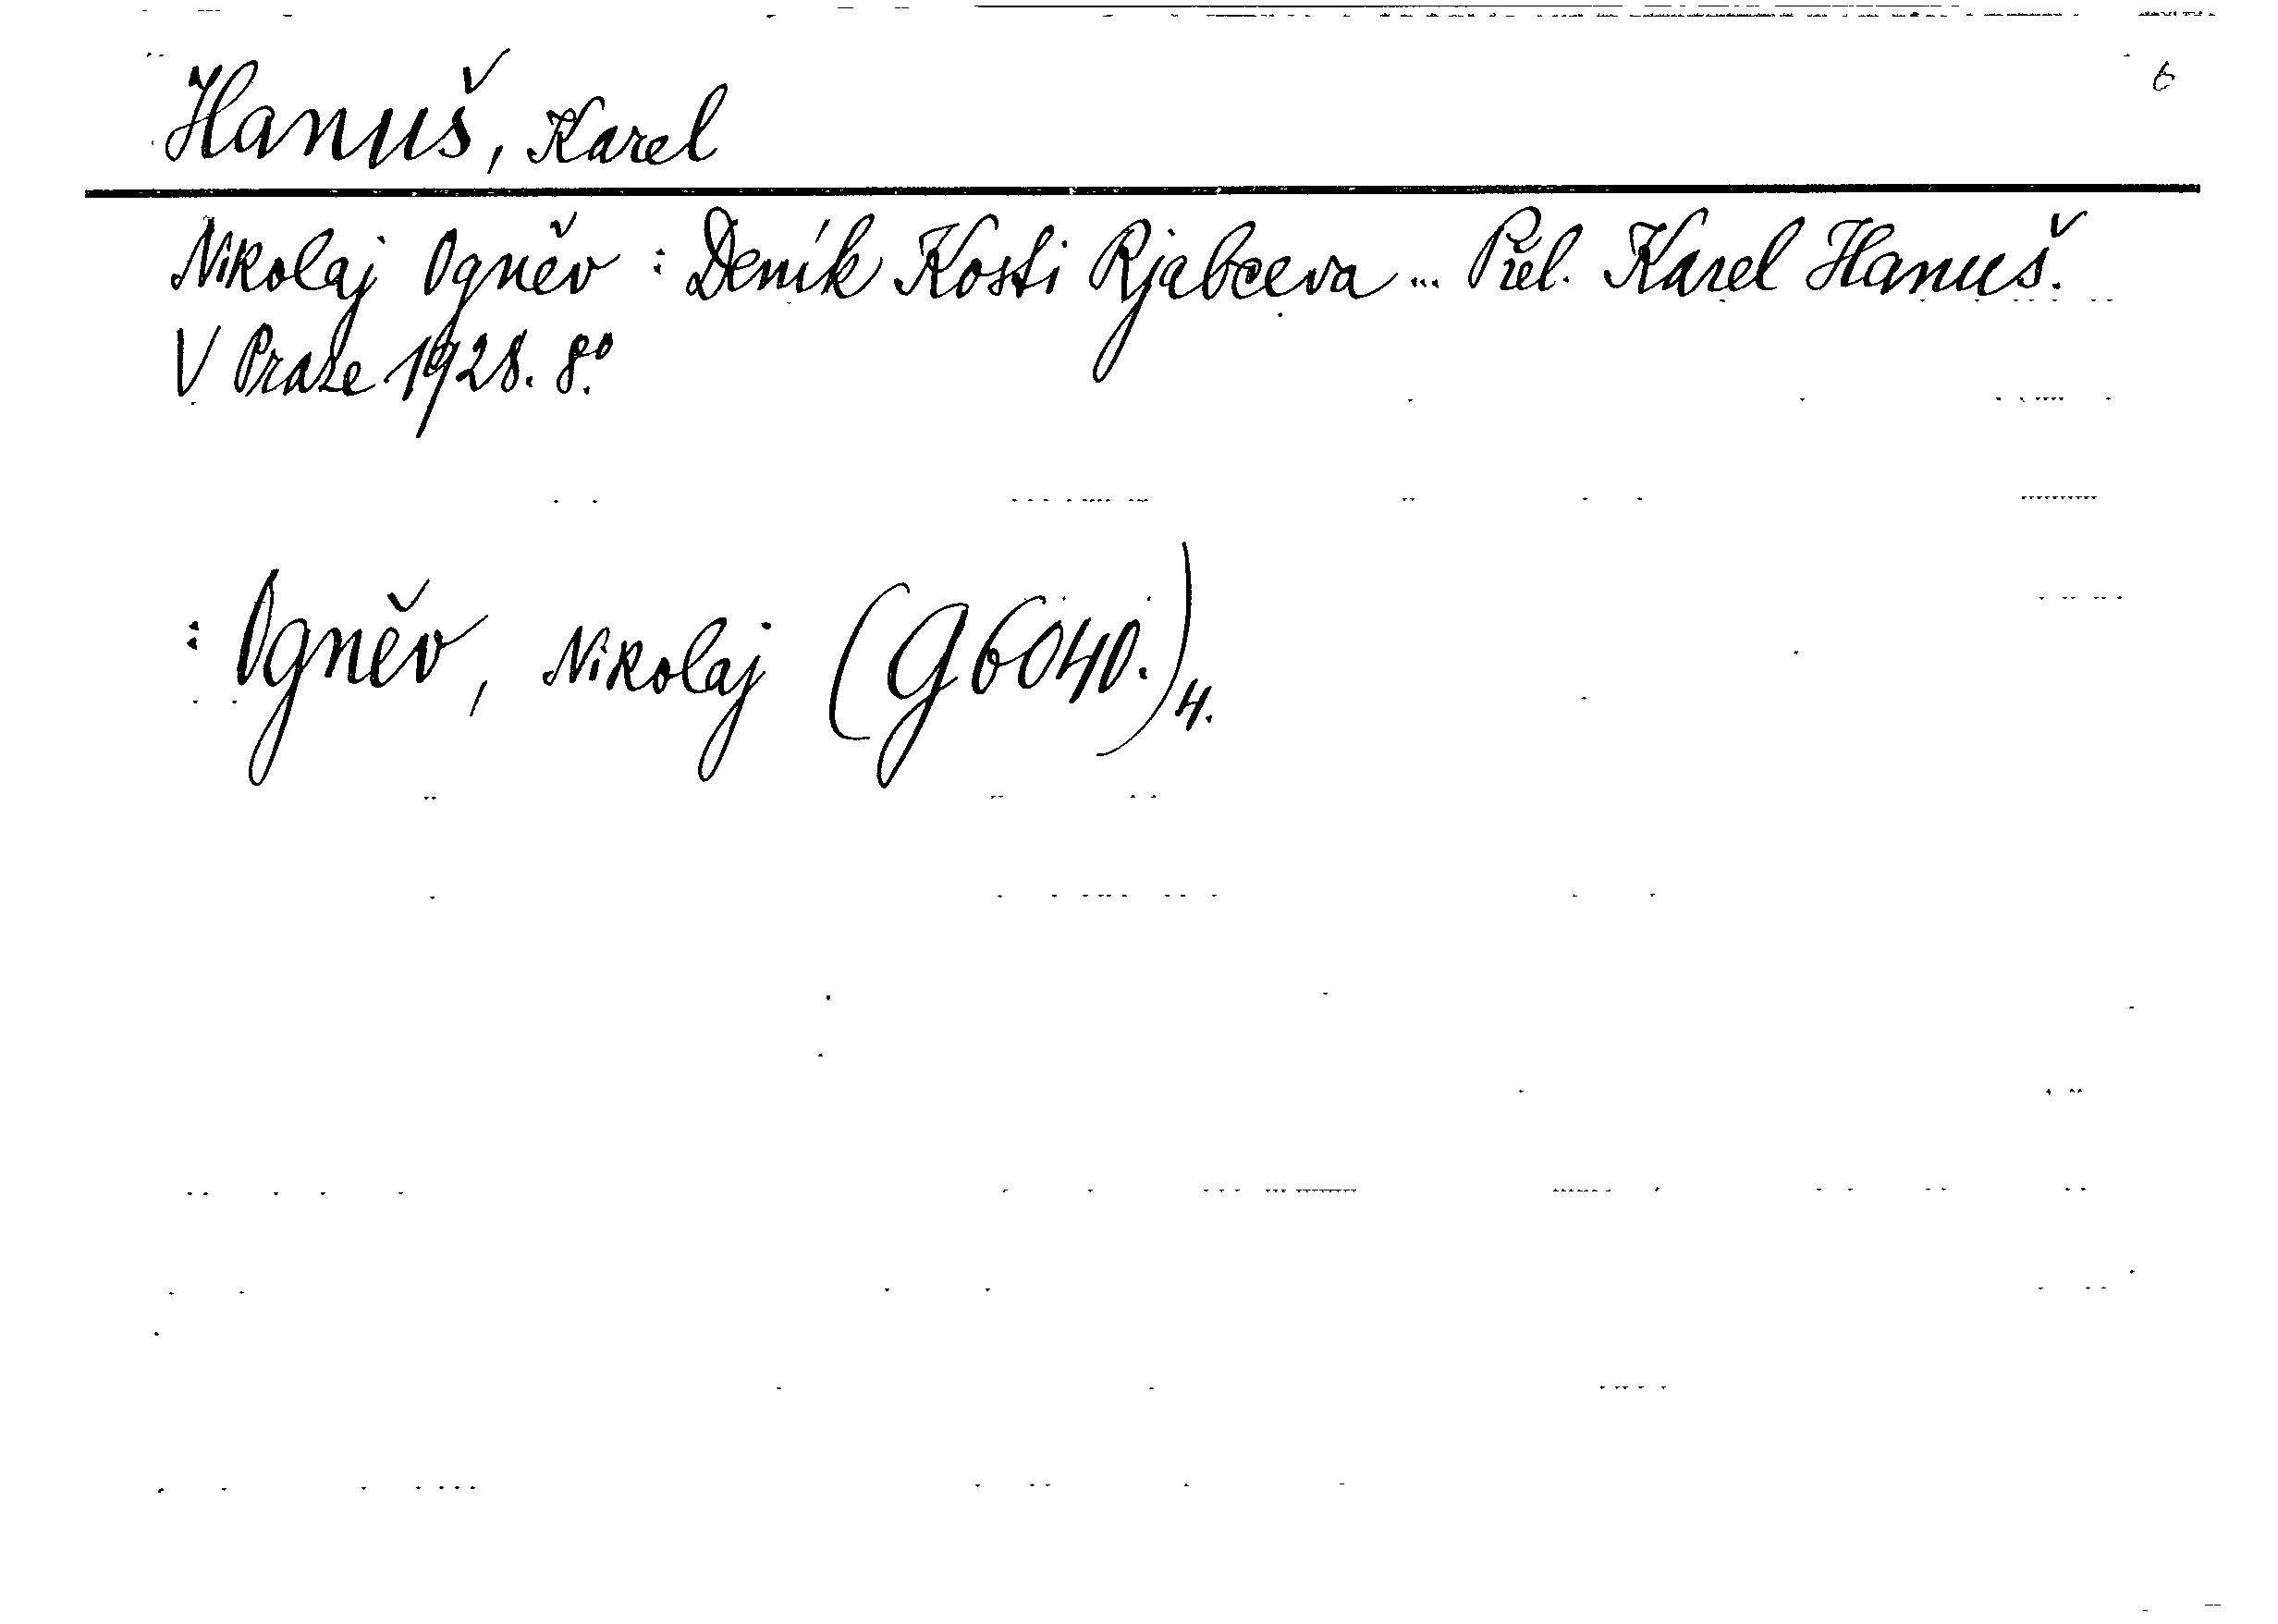 6
Hanuš, Karel
Nikolaj Ogněv : Deník Kosti Rjabceva ... Přel. Karel Hanuš.
V Praze 1928. 8.°
: Ogněv, Nikolaj (g 6040.) 4.